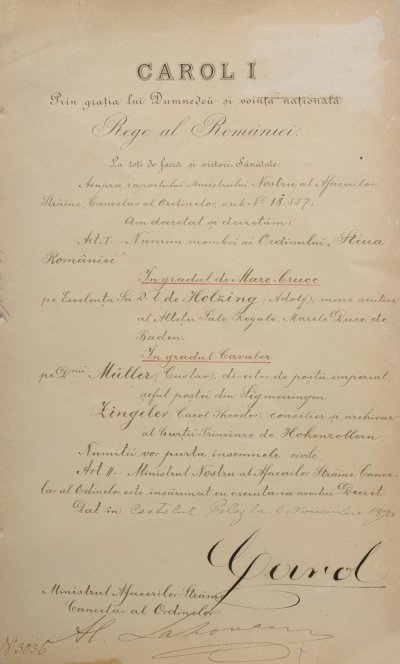 CAROL I
Prin grația lui Dumnedeŭ și voința națională
Rege al României.
La toți de facia și viitori, Sănĕtate.
Asupra raportului Ministrului Nostru al Afacerilor
Străine, Cancelar al Ordinelor, sub No 18.857.
Am decretat și decretăm:
Art. I. Numim membri ai Ordinului „Stéua
României"
In gradul de Mare-Cruce
pe Escelența Sa D-l de Holzing (Adolf), mare scutier
al Altetei Sale Regale, Marele Duce de
Baden.
In gradul Cavaler
pe Dnii Müller (Gustav), director de postă imperial
șeful postei din Sigmaringen
Zingeler (Carol Theodor) consilier și archivar
al Curții Princiare de Hohenzollern.
Numiții vor purta insemnele civile.
Art. II. Ministrul Nostru al Afacerilor Străine Cance-
lar al Ordinelor este însărcinat cu executarea acestui Decret
Dat în Castelul Peleș la 3 Novembre 1890
Carol
Ministrul Afacerilor Străine
Cancelar al Ordinelor
Al. Lahovari
N. 3036